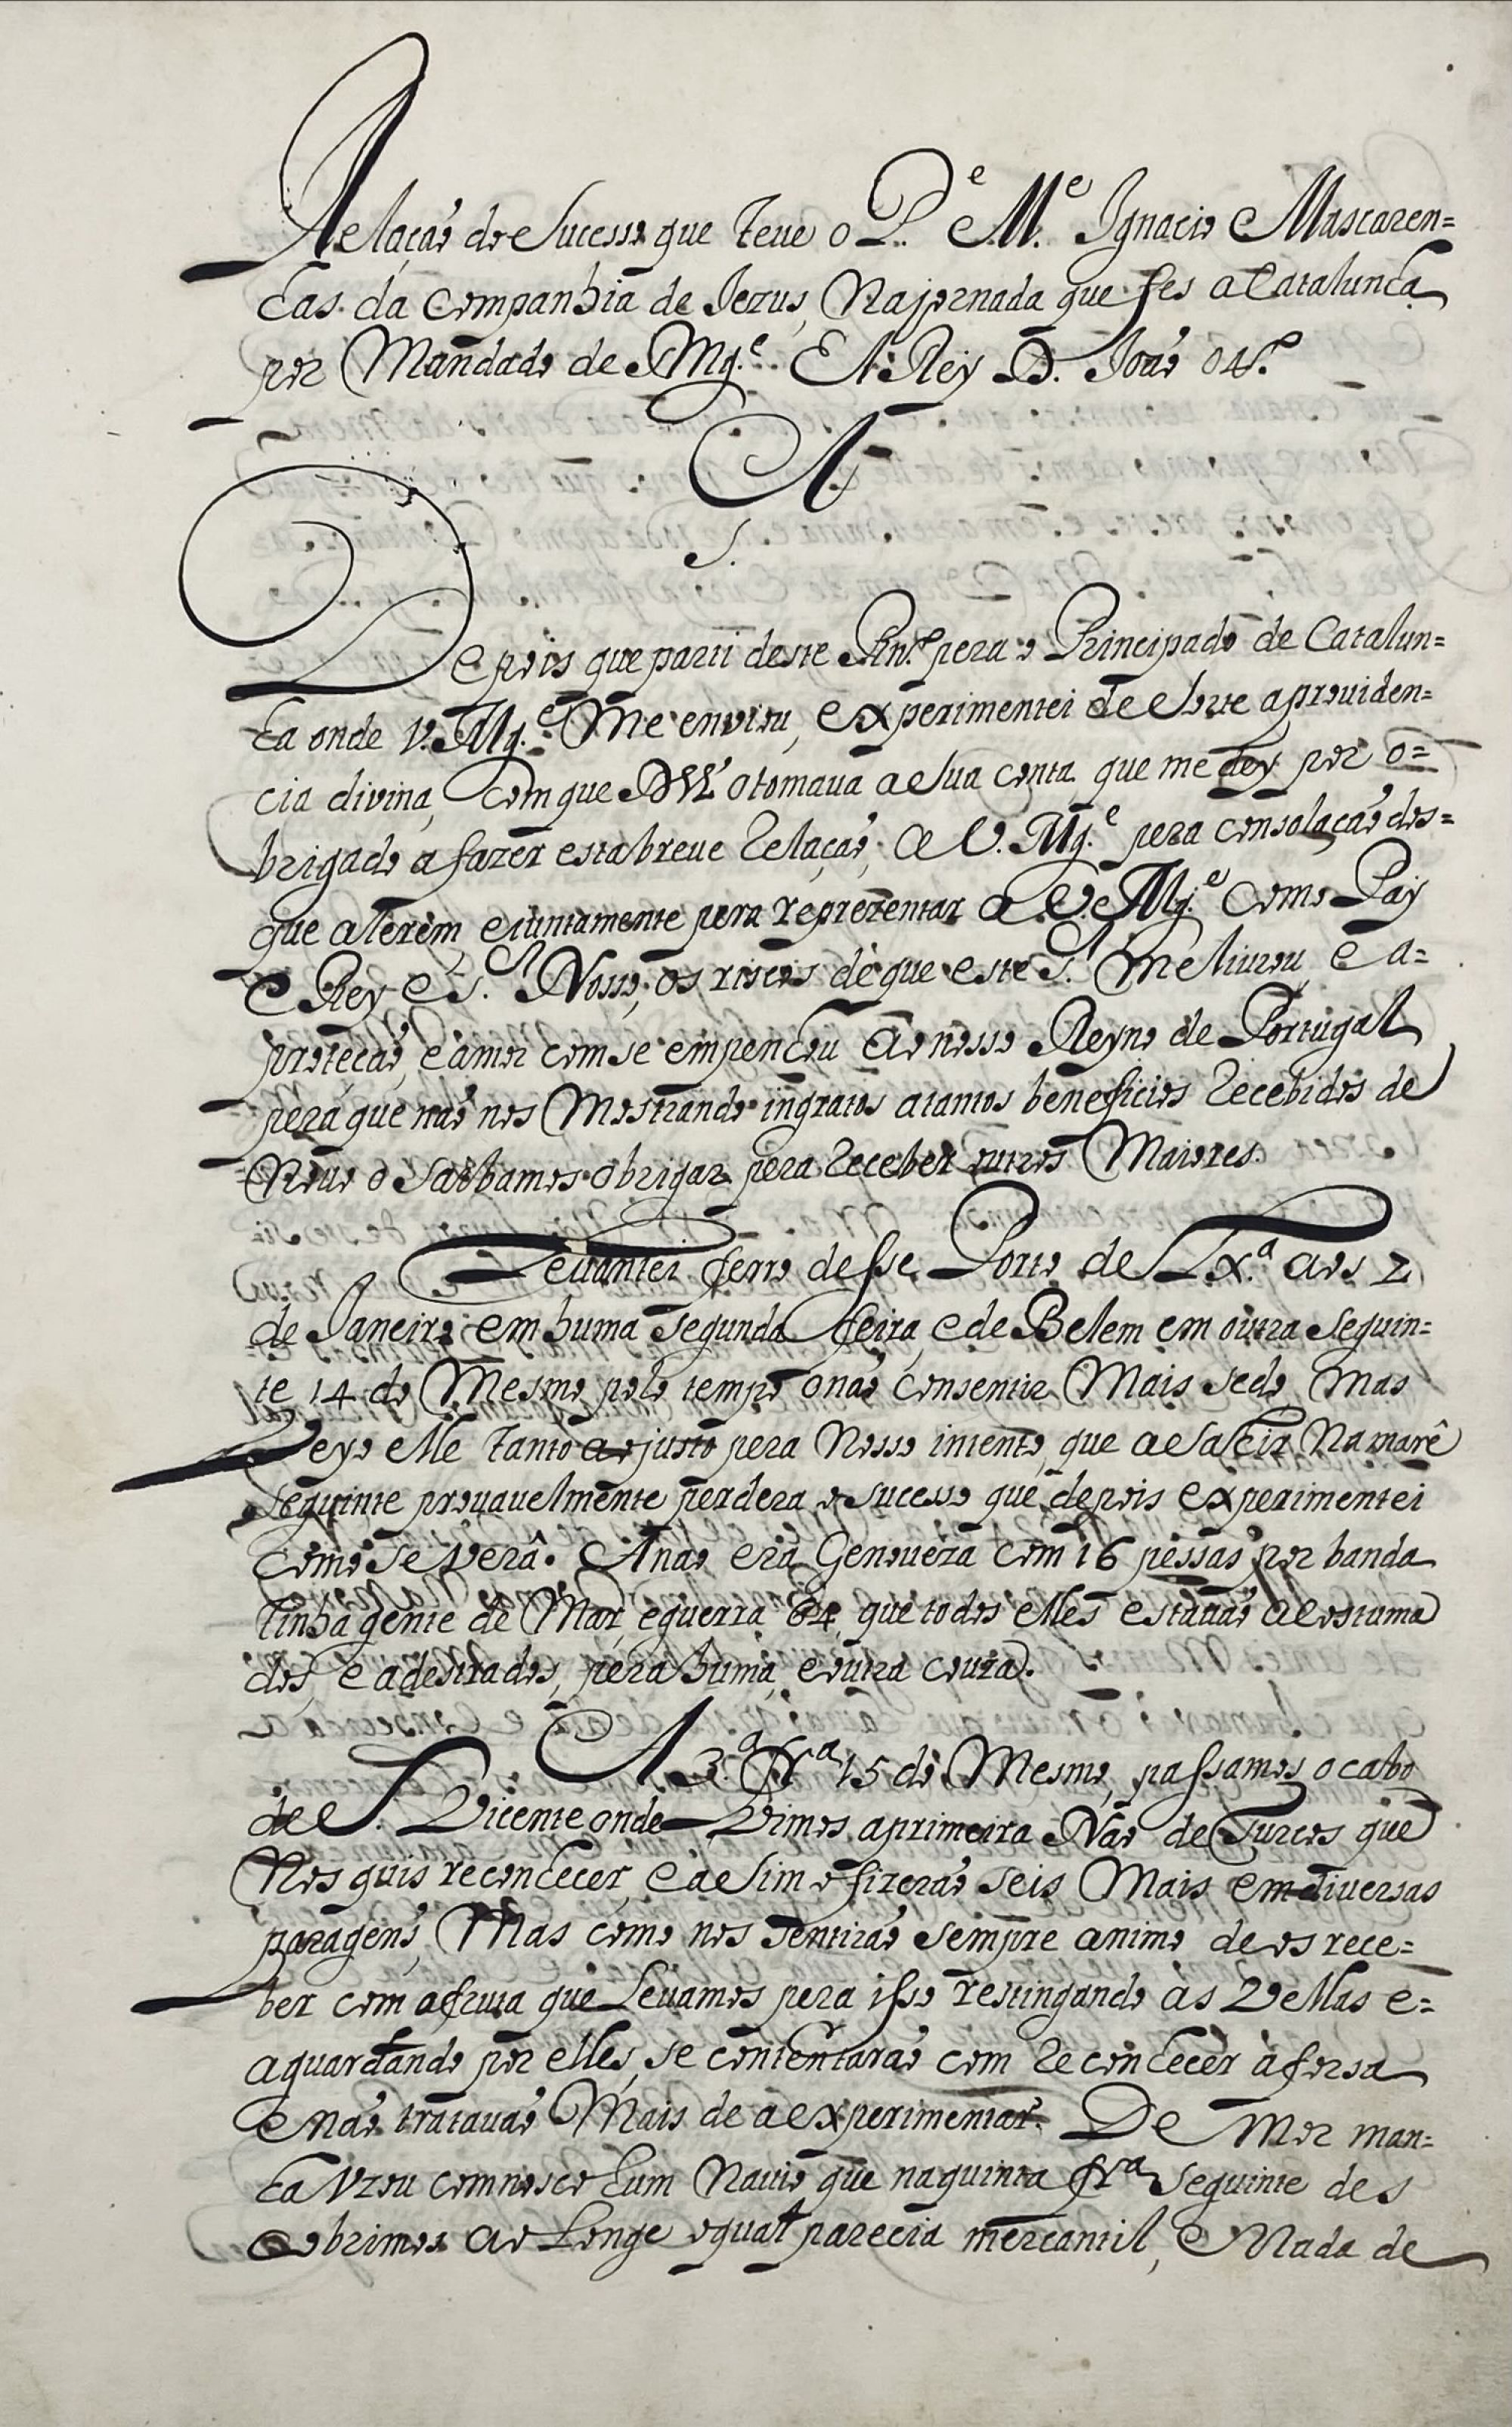 Relaçaõ do Sucesso que teue o P.e M.e Ignacio Mascaren=
has da Companhia de Jezus, Na jornada que fes a Catalunha
por Mandado de S Mg.e El Rey D. Joaõ o 4.o
S.
Depois que parti deste Rn.o pera o Principado de Catalun=
ha onde V. Mg.e Me enviou, experimentei de sorte a prouiden=
cia divina, com que Ds o tomaua a sua conta que me dey por o=
brigado a fazer esta breue Relaçaõ, a V. Mg.e pera consolaçaõ dos=
que a lerem, e iuntamente pera reprezentar a V. Mg.e como Pay
e Rey e S.r Nosso, os riscos de que este S.r me liurou e a=
proteçaõ, e amor com se empenhou ao nosso Reyno de Portugal
pera que naõ nos Mostrando ingratos a tantos beneficios Recebidos de
Nouo o Saibamos obrigar pera Receber outros Maiores.
Leuantei ferro desse Porto de Lx.a aos 2
de Janeiro em huma segunda feira, e de Belem em outra seguin=
te 14 do Mesmo, pelo tempo o naõ consentir Mais sedo, mas
Veyo elle tanto ao justo pera Nosso intento, que a e sahir Na marê
seguinte prouauelmente perdera o sucesso que depois experimentei
como se verâ. A nao era Genoueza com 16 pessas por banda
tinha gente de Mar, e guerra 64, que todos elles estauaõ acostuma
dos, e adestrados, pera huma, e outra couza.
A 3.a Fr.a 15 do Mesmo, passamos o cabo
de S. Vicente onde Vimos a primeira Nao de Turcos que
Nos quis reconhecer, e a e sim o fizeraõ seis Mais em diuersas
paragens, Mas como nos sentiraõ sempre animo de os rece=
ber com a fruta que Leuamos pera isso restingando as Vellas e=
aguardando por elles, se contentaraõ com Reconhecer a forsa
e naõ trataraõ Mais de a experimentar. De Mor man=
ha Vzou comnosco hum Nauio que na quinta fr.a seguinte des
cobrimos ao Longe o qual parecia mercantil, e Nada de